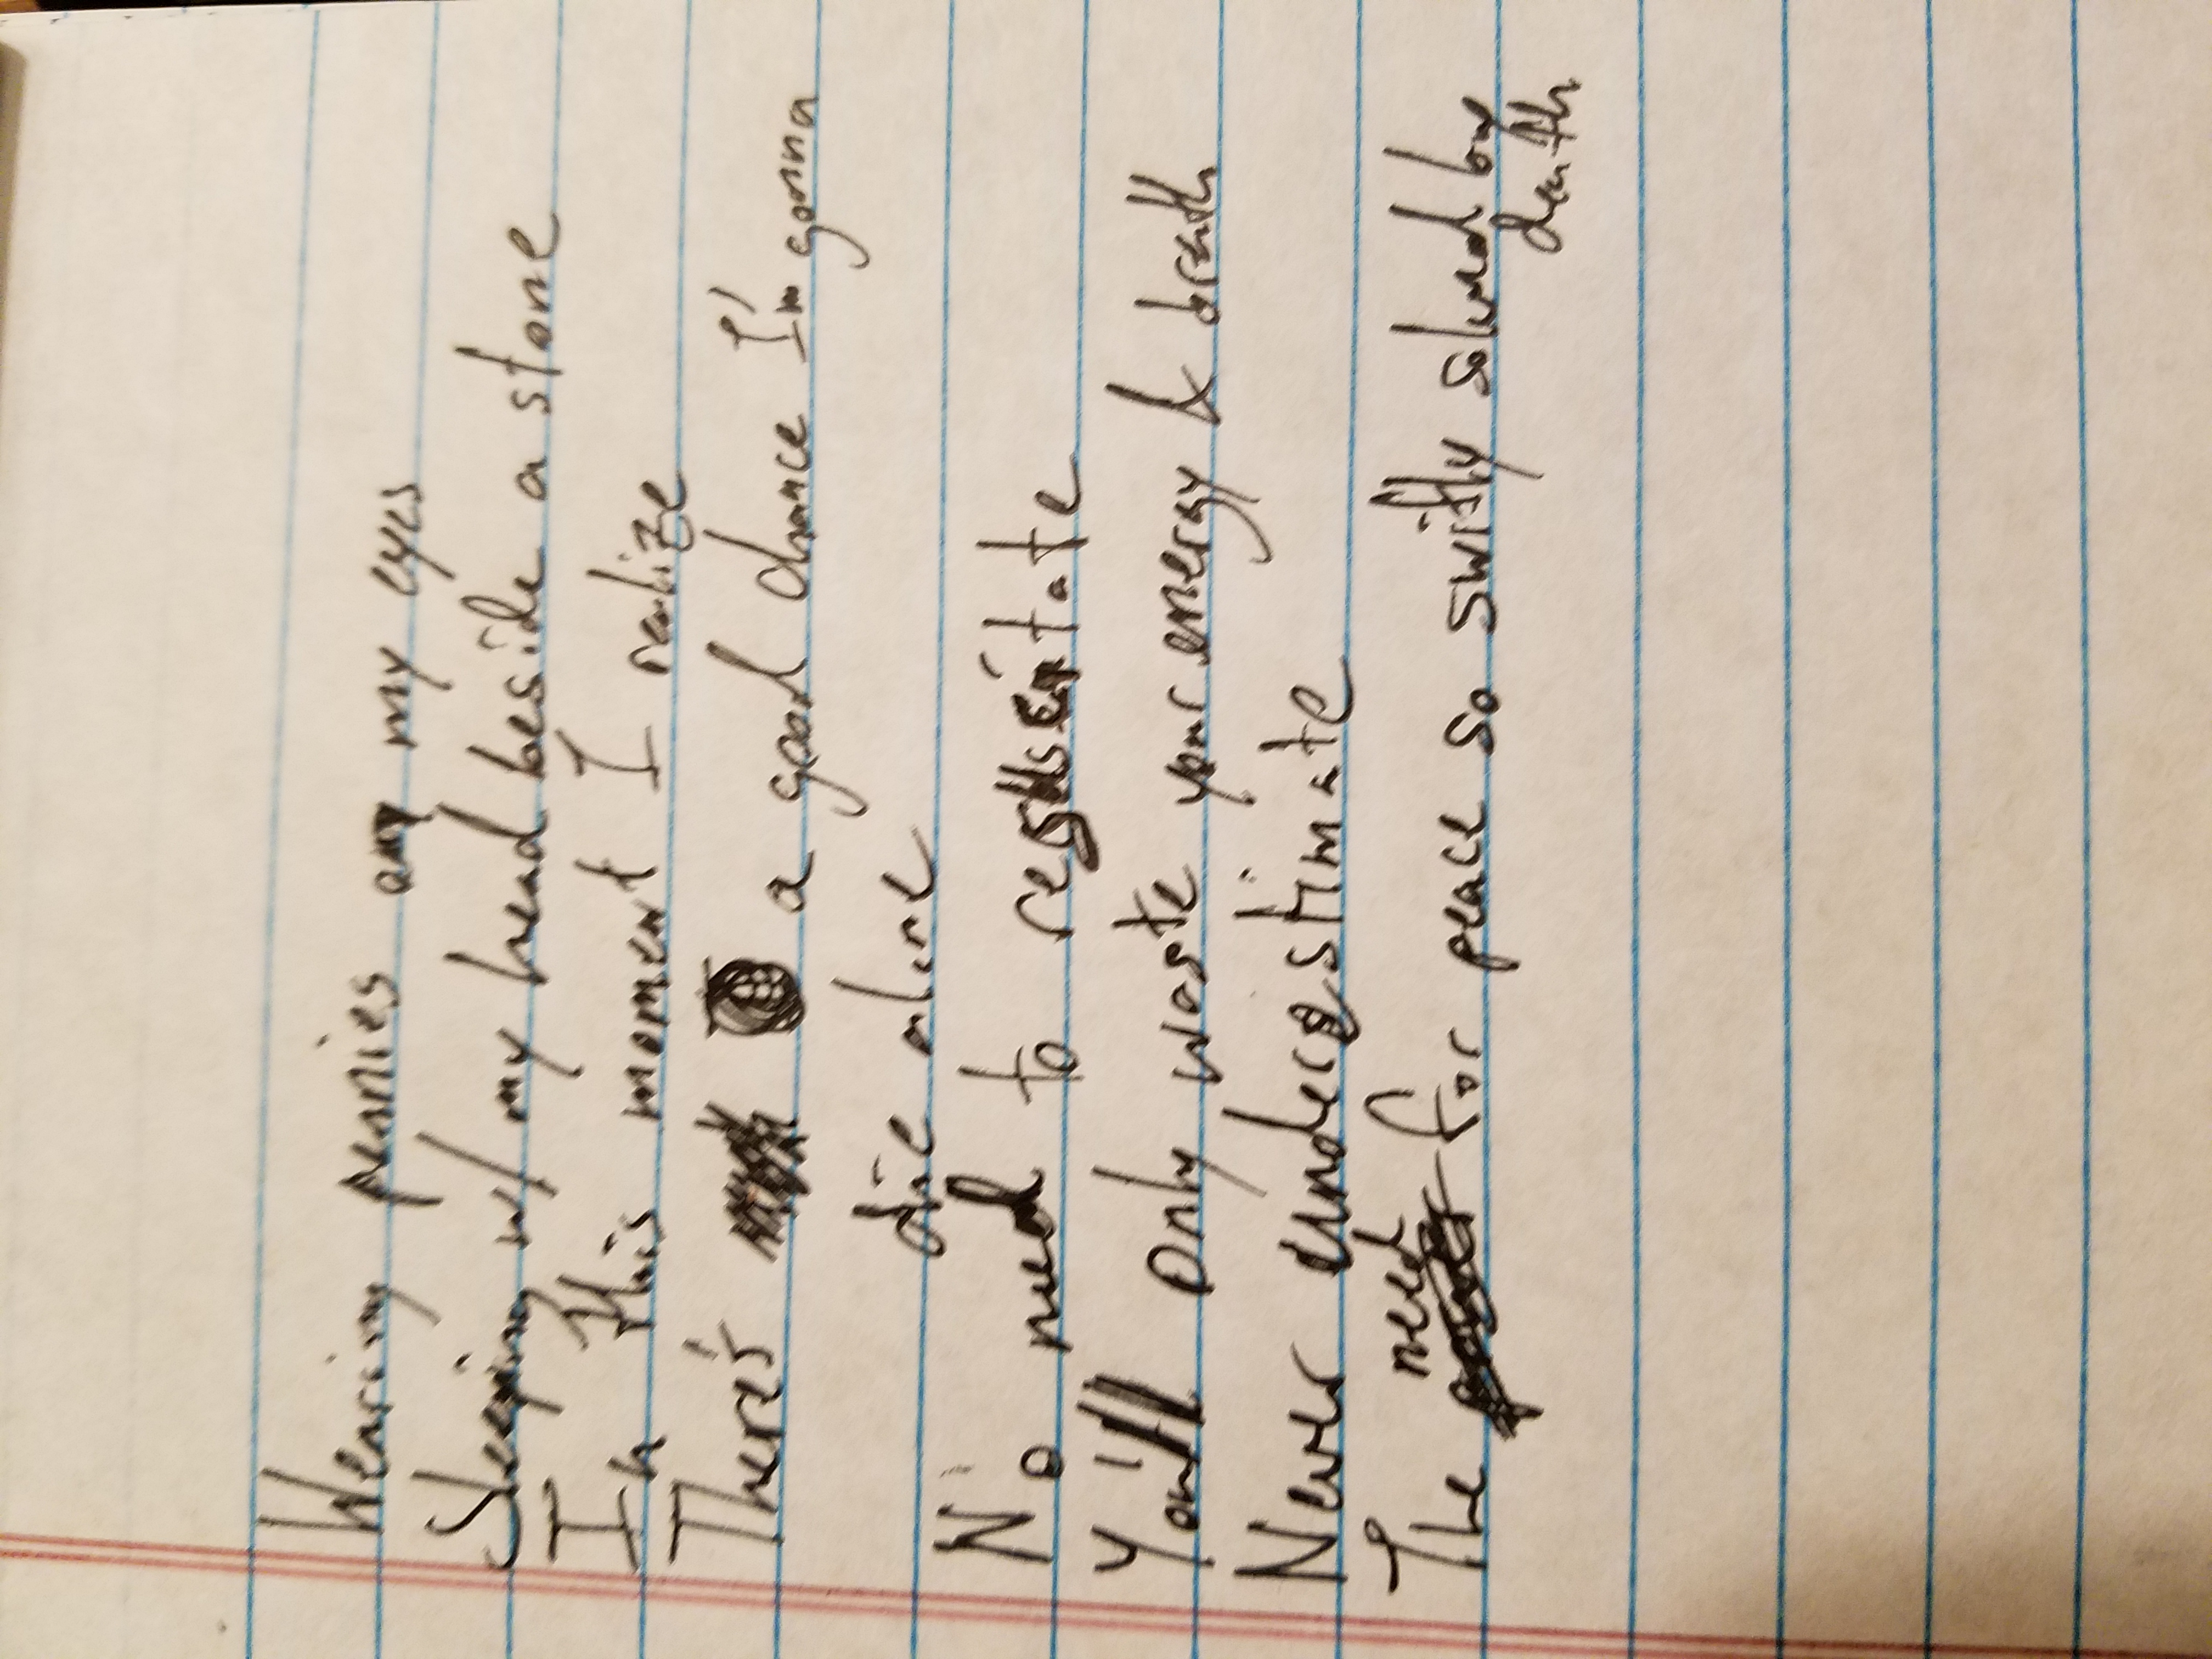 Wearing pennies on my eyes
Sleeping w/ my head beside a stone
In this moment I realize
There's a good chance I'm gonna
die alone
No need to resusitate
You'll only waste your energy & breath
Never underestimate
The need for peace so swiftly solved by
death